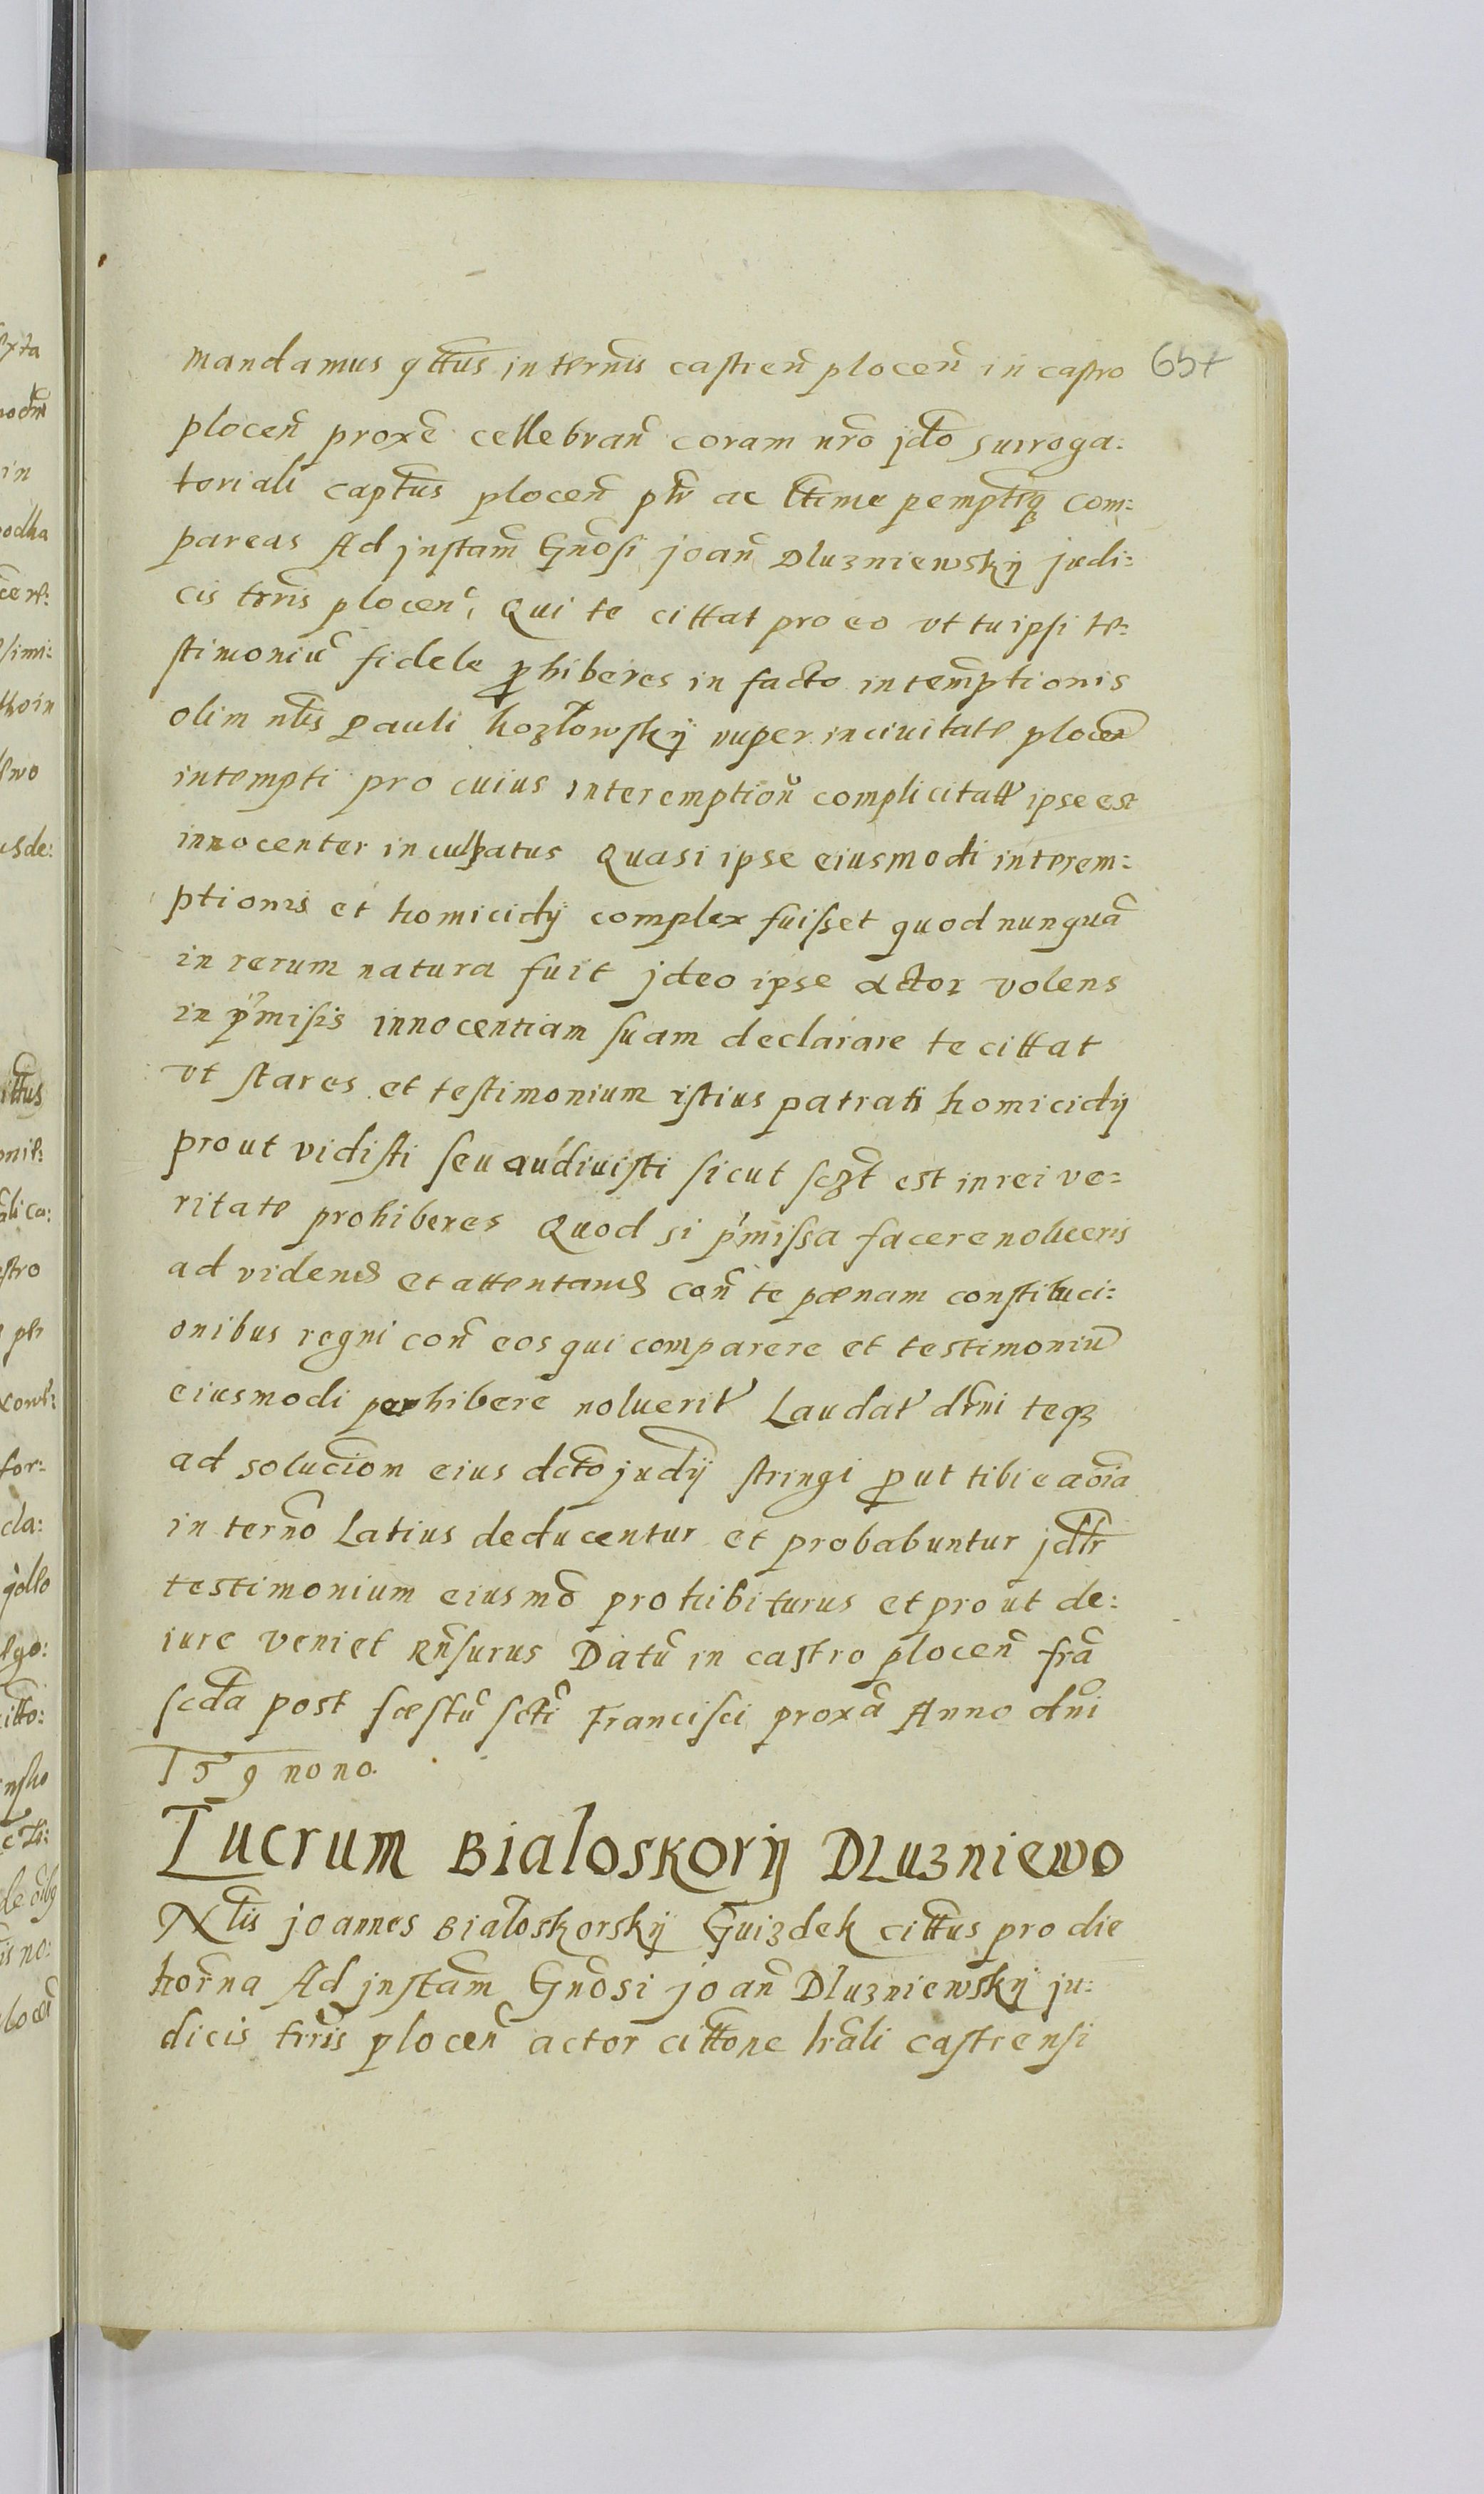 mandamus qttus in termis castren plocen in castro 657
plocen proxe cellebran coram nro jdto surroga:
toriali captus plocen ptr ac ltime pemptieq com:
pareas Ad jnstam Gnosi joan Dluzniewskij judi:
cis trris plocen, Qui te cittat pro eo vt tu ipsi te:
stimoniu fidele phiberes in facto intemptionis
olim nlis Pauli kozłowskij nuper in ciuitate plocen
intempti pro cuius interemption complicitatt ipse est
innocenter inculpatus Quasi ipse eiusmodi interem:
ptionis et homicidij complex fuisset quod nunqua
in rerum natura fuit jdeo ipse actor volens
in pmisis innocentiam suam declarare te cittat
vt stares et testimonium istius patrati homicidij
prout vidisti seu audiuisti sicut sczt est in rei ve:
ritate prohiberes Quod si pmissa facere nolueris
ad vidend et attentand con te pœnam constituci:
onibus regni con eos qui comparere et testimoniu
eiusmodi perhibere noluerit Laudat drni teqz
ad solucion eius dcto judij stringi put tibi ea oia
in terno Latius deducentur et probabuntur jdtr
testimonium eiusmo prohibiturus et prout de:
iure veniet Rnsurus Datu in castro plocen fra
scda post fœstu scti Francisci proxa Anno dni
159 nono.
Lucrum Bialoskorij Dluzniewo
Nlis joannes Białoskorskij Gwizdek cittus pro die
horna Ad jnstam Gnosi joan Dluzniewskij ju:
dicis trris plocen actor cittone lrali castrensi